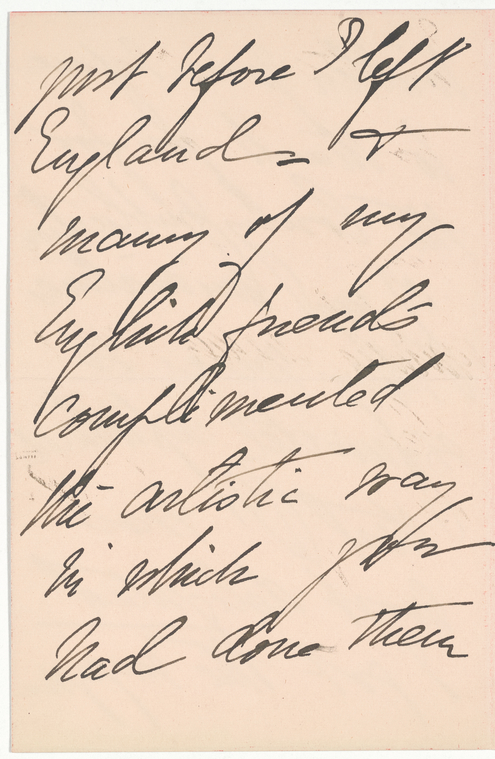 just before I left
England – &
many of my
English friends
complimented
the artistic way
in which you
had done them